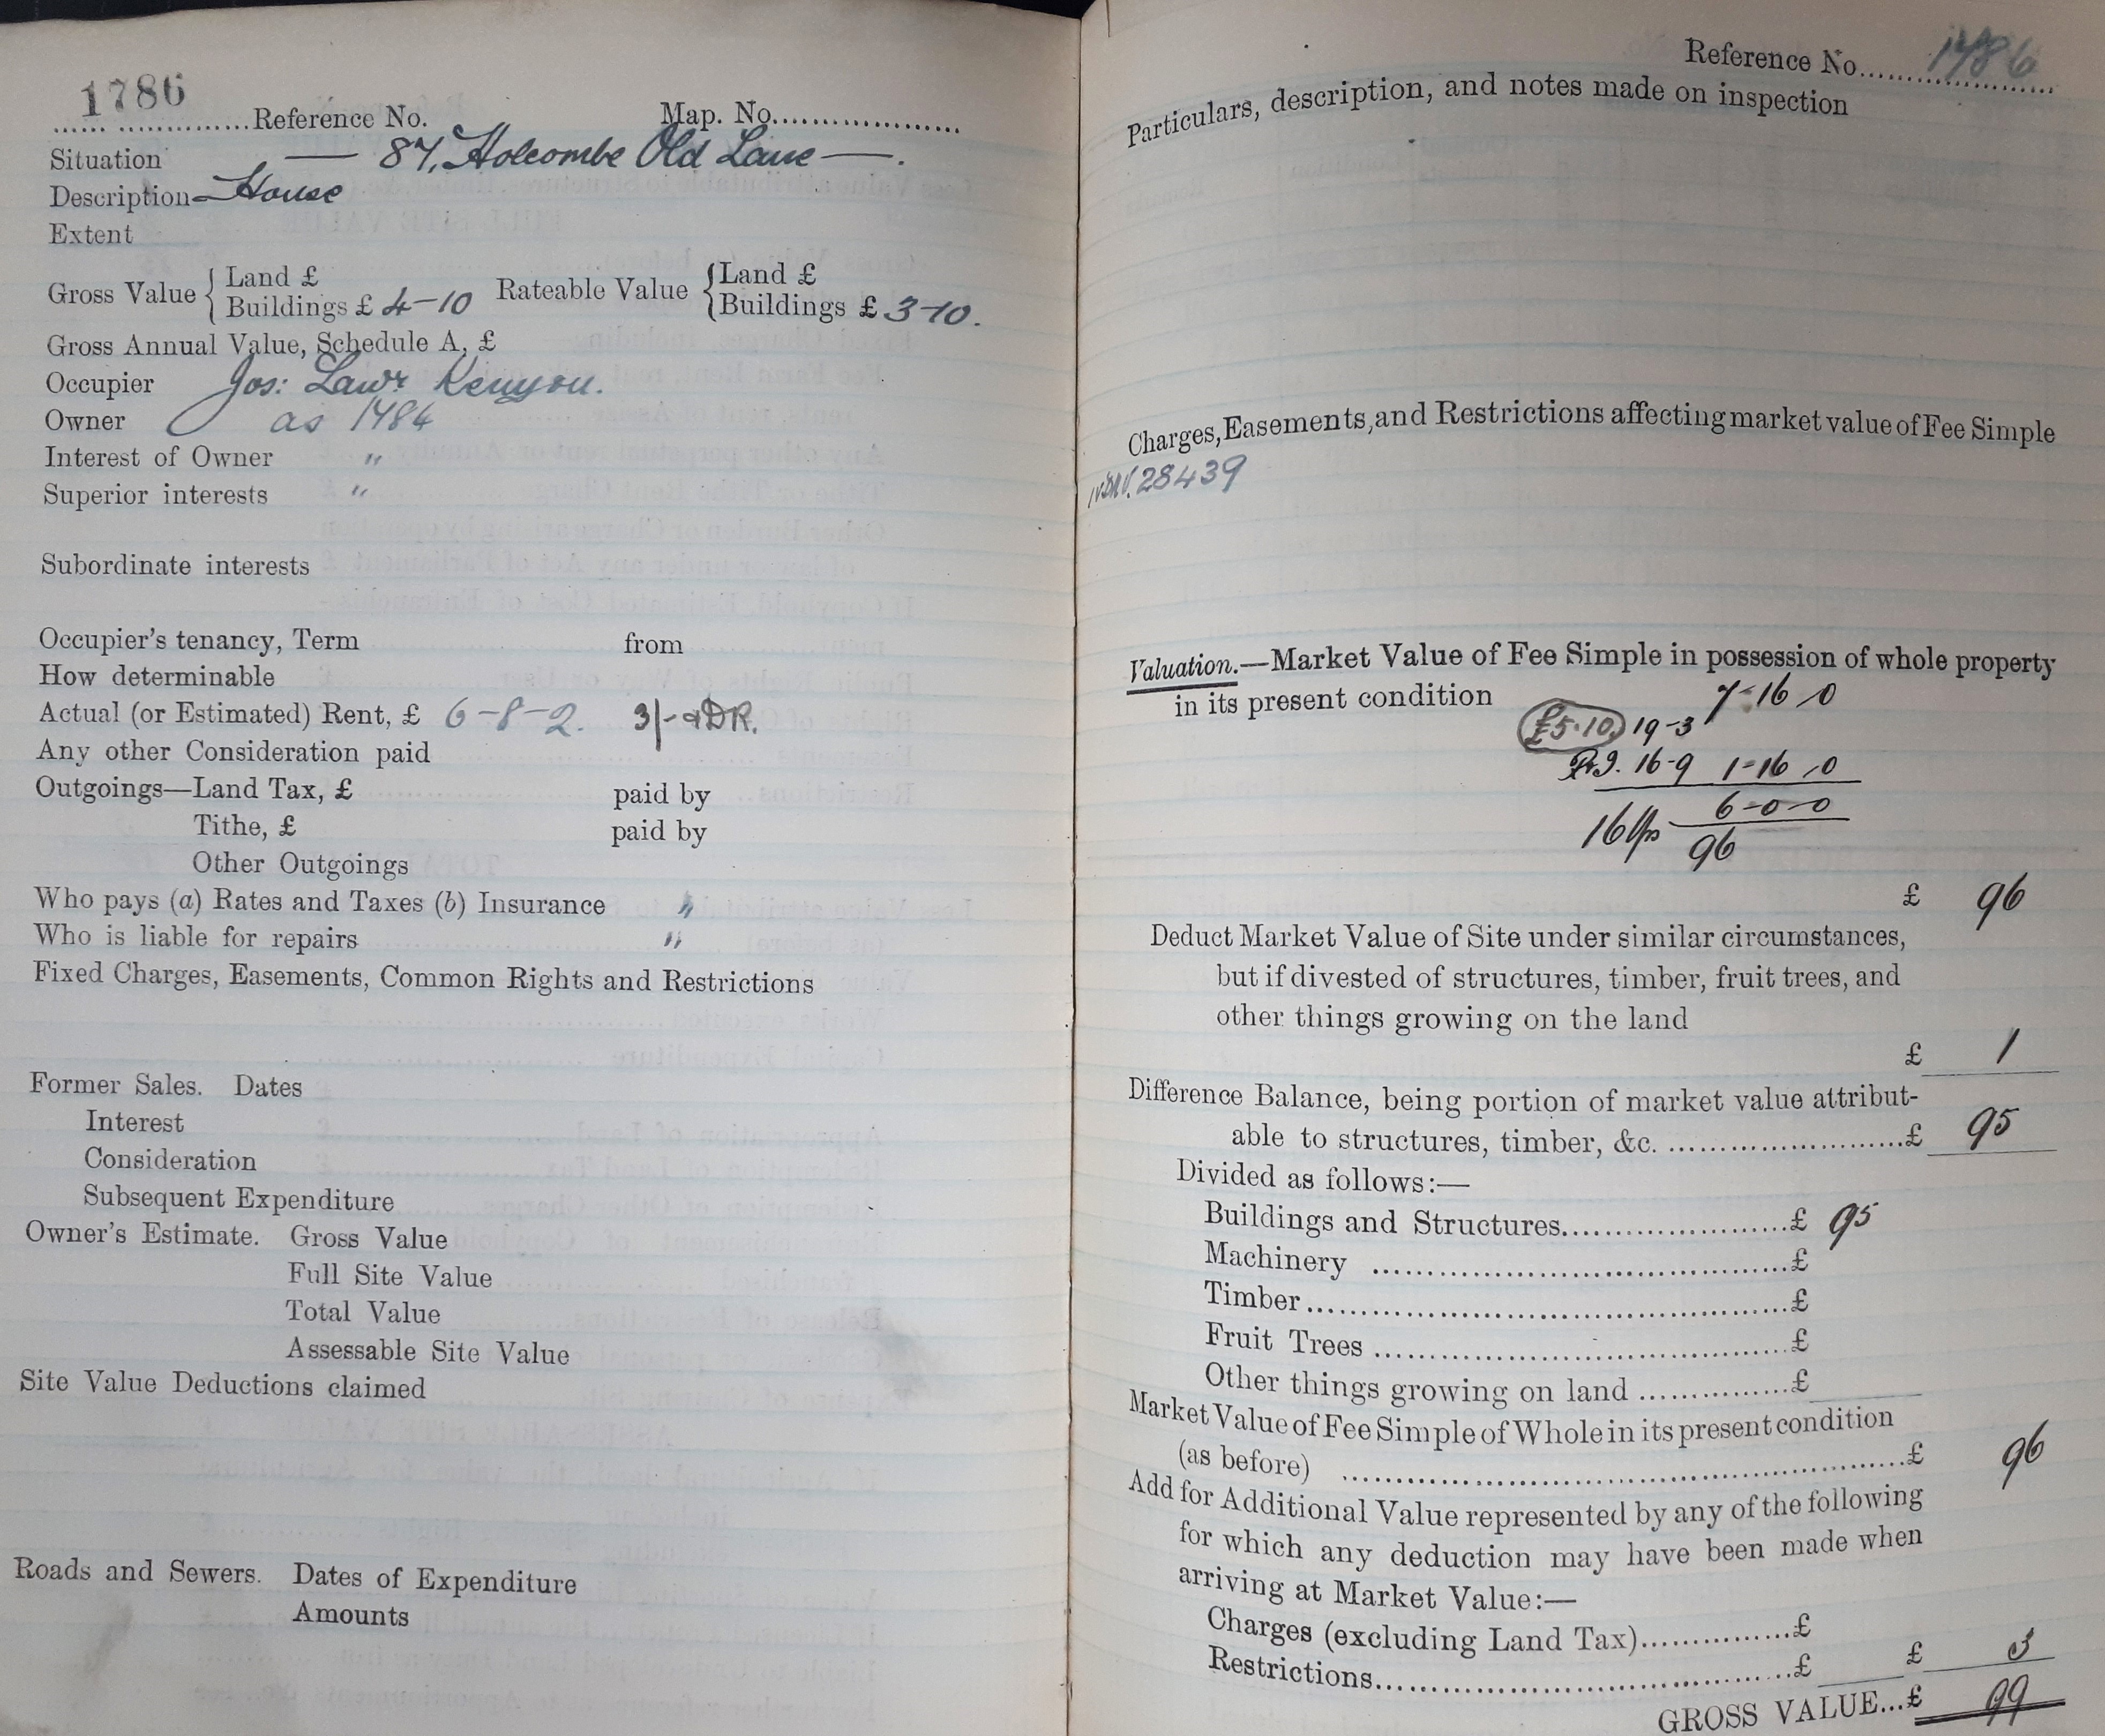 1786
Reference No. Map. No.
Situation — 87, Holcombe Old Lane —.
Description House
Extent
Gross Value { Land £
Buildings £ 4-10 Rateable Value { Land £
Buildings £ 3-10.
Gross Annual Value, Schedule A, £
Occupier Jos: Lawr Kenyon.
Owner as 1784
Interest of Owner "
Superior interests "
Subordinate interests
Occupier's tenancy, Term from
How determinable
Actual (or Estimated) Rent, £ 6-8-2. 3/- & DR.
Any other Consideration paid
Outgoings—Land Tax, £ paid by
Tithe, £ paid by
Other Outgoings
Who pays (a) Rates and Taxes (b) Insurance "
Who is liable for repairs "
Fixed Charges, Easements, Common Rights and Restrictions
Former Sales. Dates
Interest
Consideration
Subsequent Expenditure
Owner's Estimate. Gross Value
Full Site Value
Total Value
Assessable Site Value
Site Value Deductions claimed
Roads and Sewers. Dates of Expenditure
Amounts
Reference No. 1786
Particulars, description, and notes made on inspection
Charges, Easements, and Restrictions affecting market value of Fee Simple
28439
Valuation.—Market Value of Fee Simple in possession of whole property
in its present condition 7-16-0
£5.10 19-3
16-9 1-16-0
6-0-0
16 yps 96
£ 96
Deduct Market Value of Site under similar circumstances,
but if divested of structures, timber, fruit trees, and
other things growing on the land
£ 1
Difference Balance, being portion of market value attribut-
able to structures, timber, &c. £ 95
Divided as follows:—
Buildings and Structures £ 95
Machinery £
Timber £
Fruit Trees £
Other things growing on land £
Market Value of Fee Simple of Whole in its present condition
(as before) £ 96
Add for Additional Value represented by any of the following
for which any deduction may have been made when
arriving at Market Value:—
Charges (excluding Land Tax) £
Restrictions £ £ 3
GROSS VALUE...£ 99